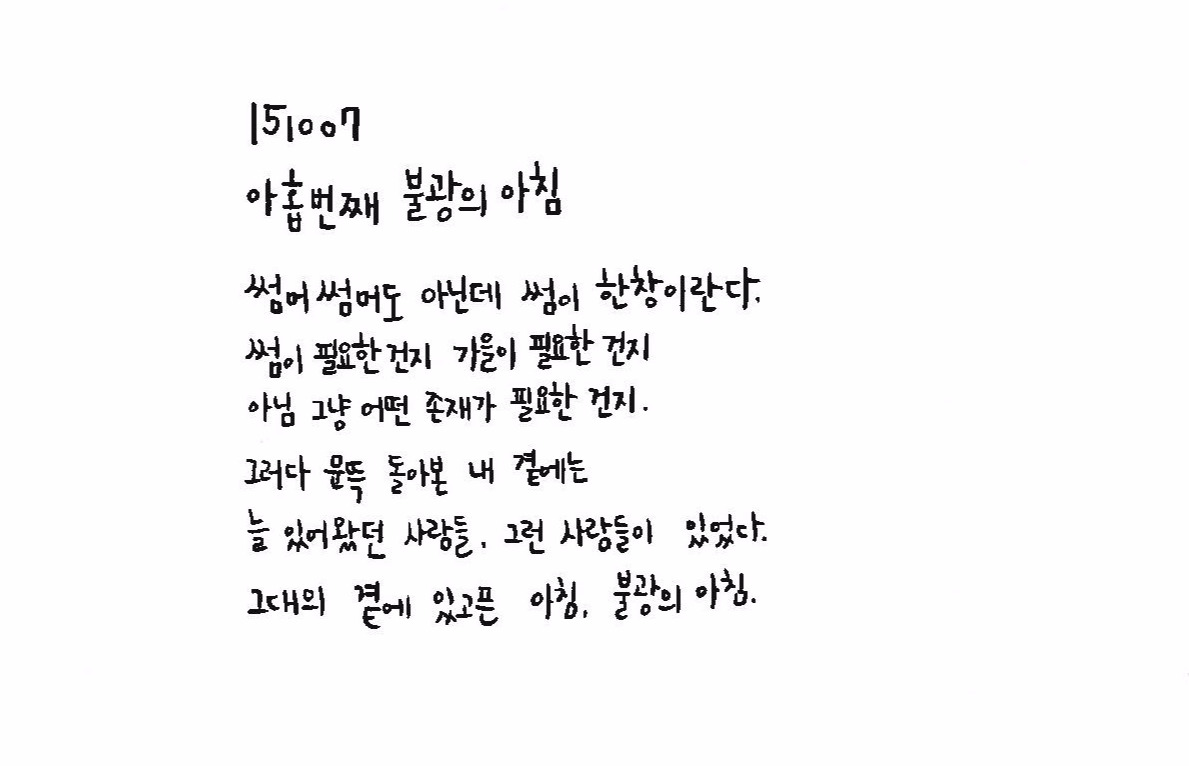 151007
아홉번째 불광의 아침
썸머썸머도 아닌데 썸이 한창이란다.
썸이 필요한건지 가을이 필요한 건지
아님 그냥 어떤 존재가 필요한 건지.
그러다 문뜩 돌아본 내 곁에는
늘 있어왔던 사람들, 그런 사람들이 있었다.
그대의 곁에 있고픈 아침, 불광의 아침.